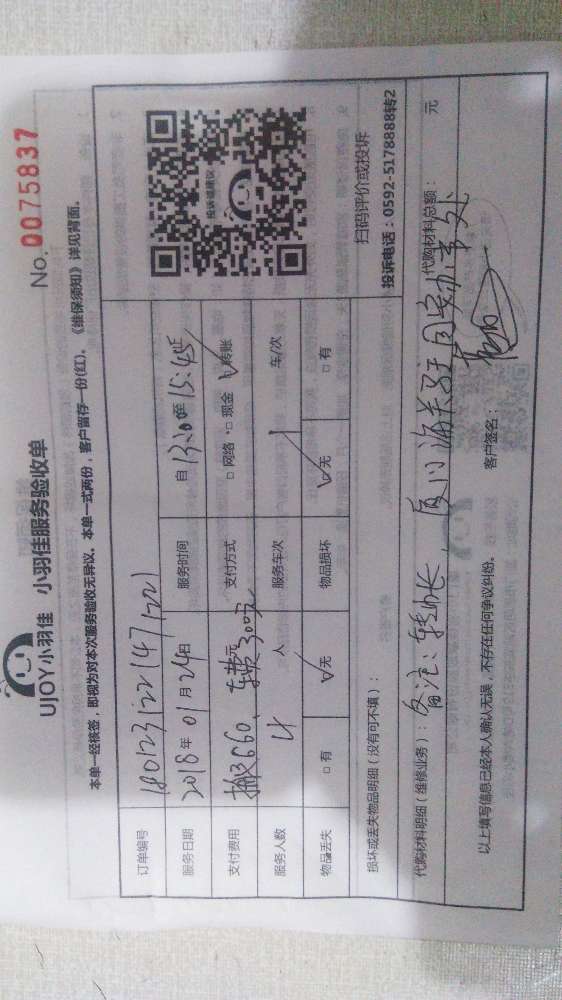 UJOY小羽佳 小羽佳服务验收单
No. 0075837
本单一经核签，即视为对本次服务验收无异议。本单一式两份，客户留存一份(红)，《维保须知》详见背面。
订单编号 180123221471221
服务日期 2018年01月24日 服务时间 自13:30至15:45
支付费用 搬3660、车费300元 支付方式 □网络 □现金 ☑转账
服务人数 4人 服务车次 1 车/次
物品丢失 □有 ☑无 物品损坏 ☑无 □有
投诉或建议
扫码评价或投诉
投诉电话：0592-5178888转2
损坏或丢失物品明细（没有可不填）：
代购材料明细（维修业务）： 代购材料总额： 元
备注：转帐，厦门海关驻同安办事处
以上填写信息已经本人确认无误，不存在任何争议纠纷。 客户签名：